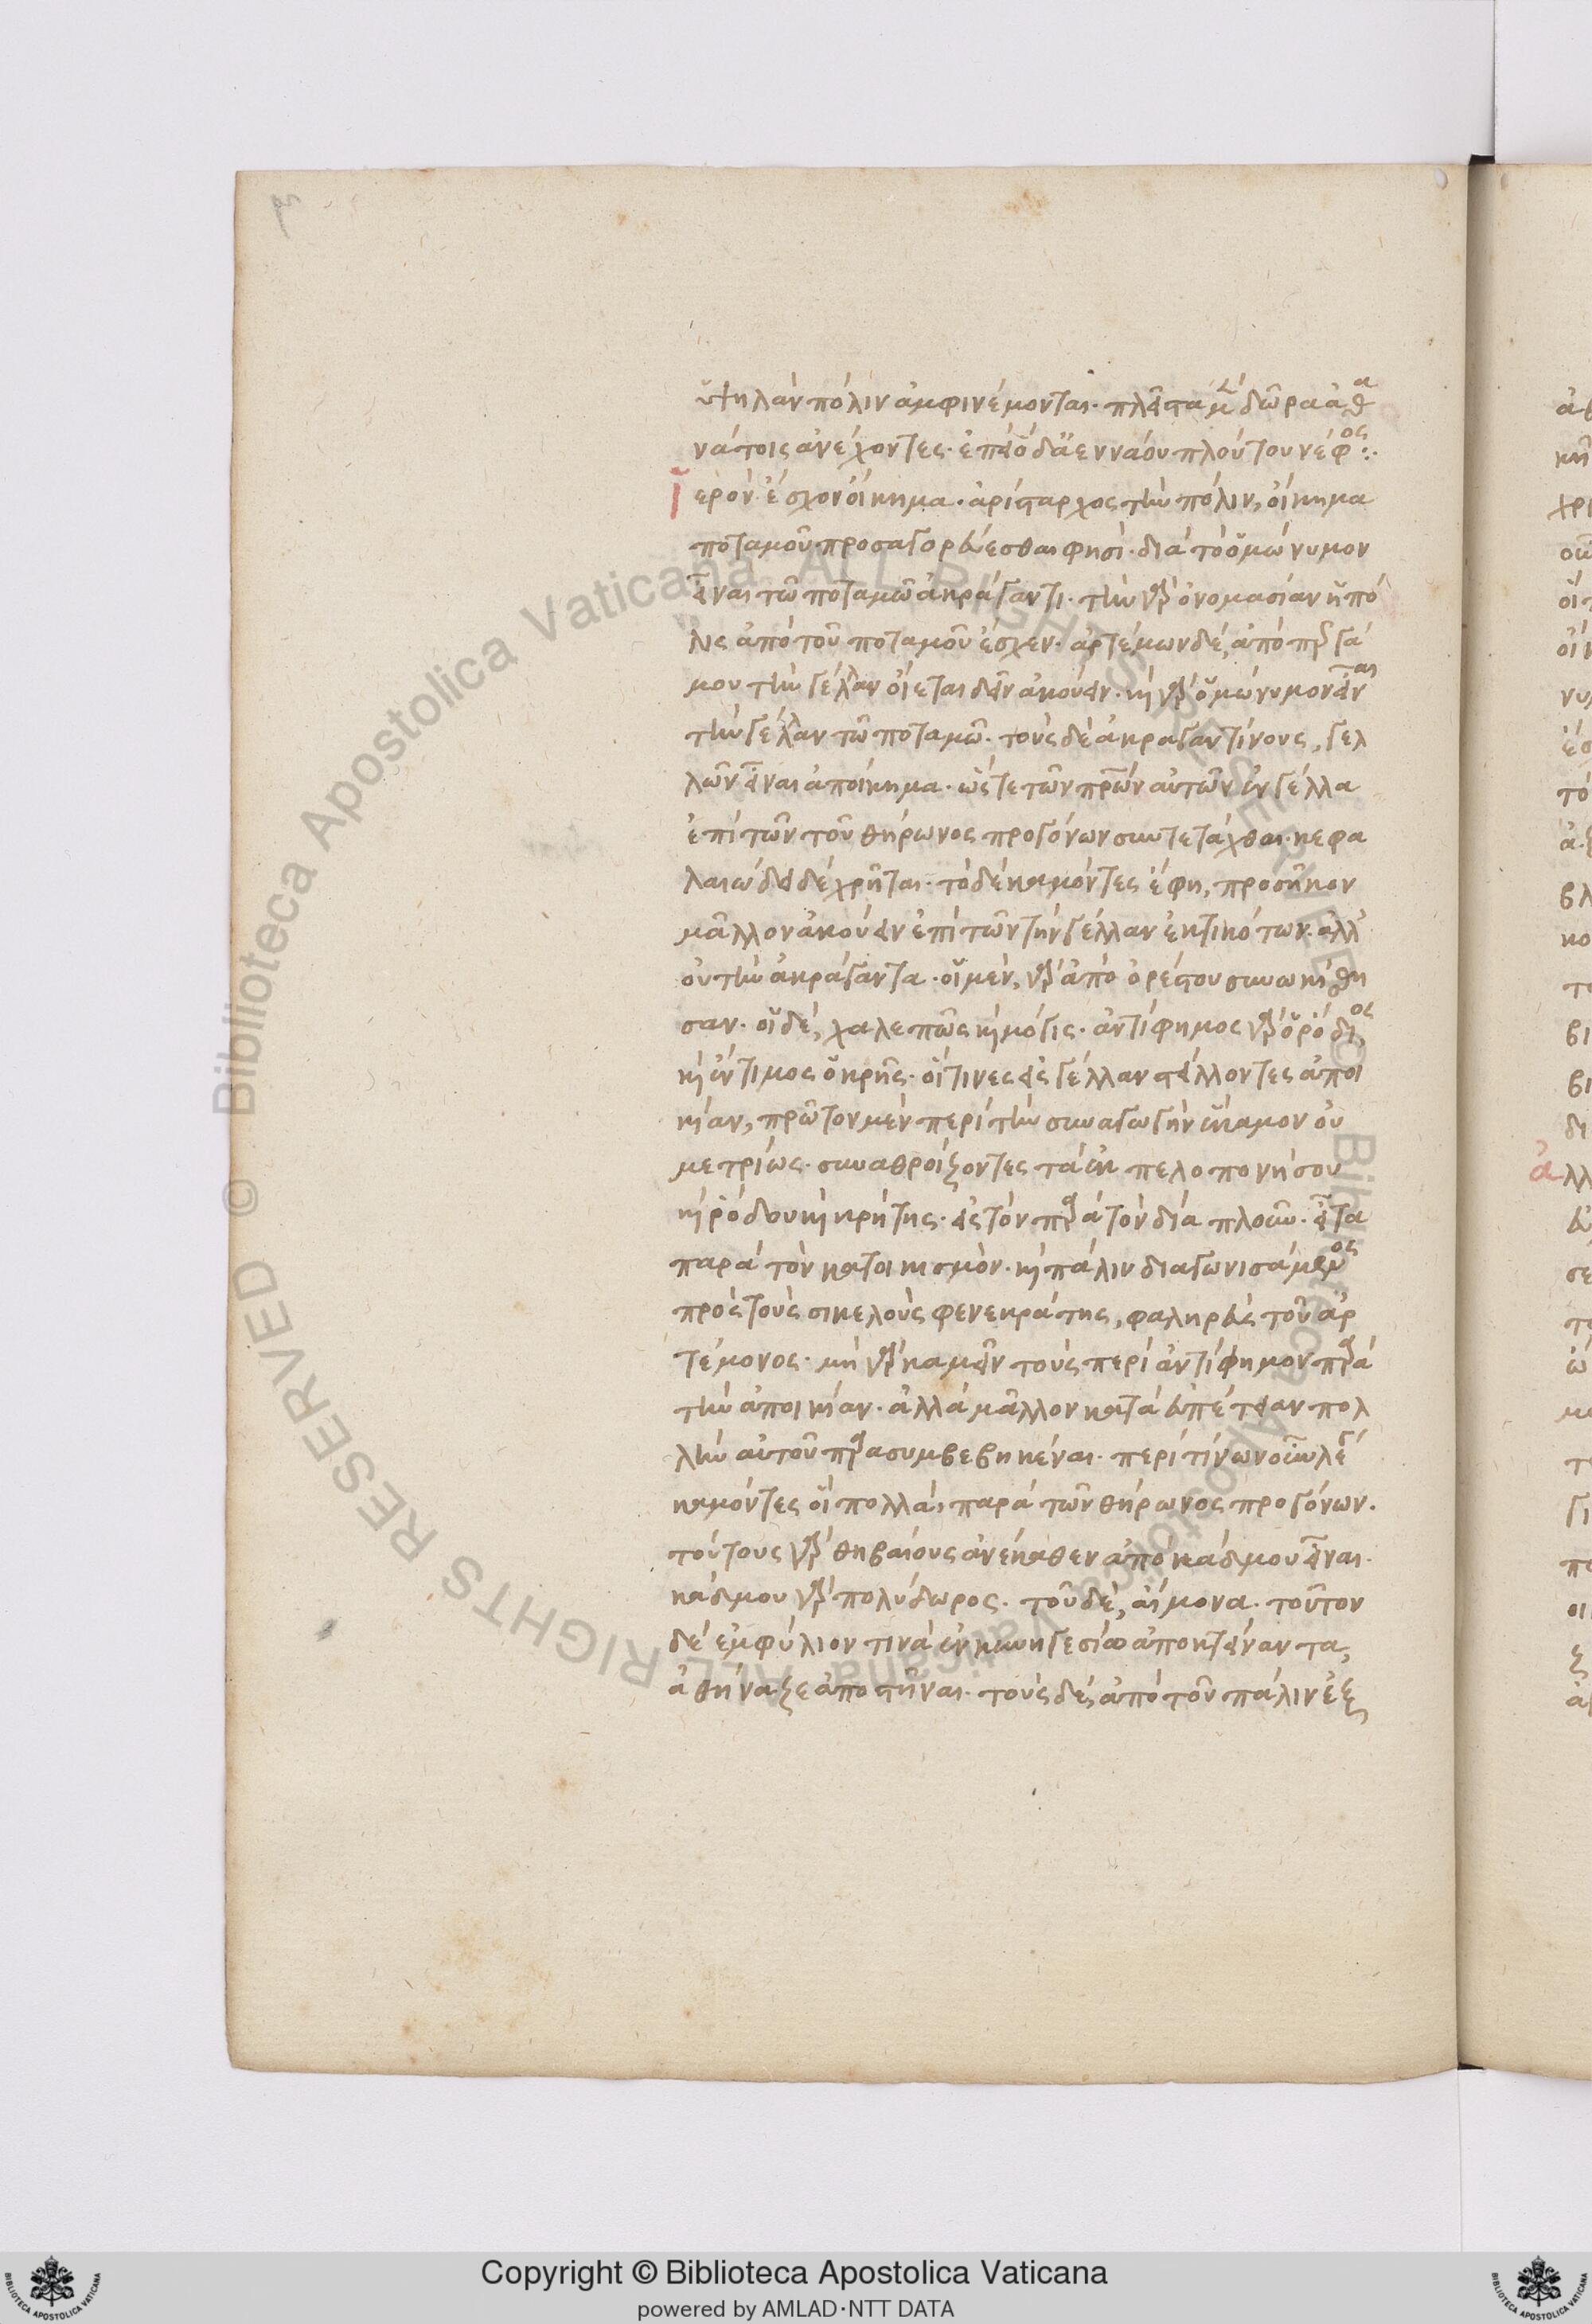 ὑψηλὰν πόλιν ἀμφινέμονται· πλεῖστα μὲν δῶρα ἀθα
νάτοις ἀνέχοντες· ἕπει ὁ δ' ἀεννάου πλούτου νέφος:·
Ἱερὸν ἔσχον οἴκημα· ἀρίσταρχος τὴν πόλιν, οἴκημα
ποταμοῦ προσαγορεύεσθαι φησί· διὰ τὸ ὁμώνυμον
εἶναι τῶ ποταμῶ ἀκράγαντι· τὴν γὰρ ὀνομασίαν ἡ πό
λις ἀπὸ τοῦ ποταμοῦ ἔσχεν· ἀρτέμων δέ, ἀπὸ περγά
μου τὴν γέλλαν οἴεται δεῖν ἀκούειν· καὶ γὰρ ὁμώνυμον εἶναι
τὴν γέλλαν τῶ ποταμῶ· τοὺς δὲ ἀκραγαντίνους, γελ
λῶν εἶναι ἀποίκημα· ὥστε τῶν πρώων αὐτῶν ἐν γέλλα
ἐπὶ τῶν τοῦ θήρωνος προγόνων συντετάχθαι· κεφα
λαιώδει δέ χρῆται· τὸ δὲ καμόντες ἔφη, προσῆκον
μᾶλλον ἀκούειν ἐπὶ τῶν τὴν γέλλαν ἐκτικότων· ἀλλ'
οὐ τὴν ἀκράγαντα· οἱ μὲν, γὰρ ἀπὸ ὀρέστου συνωκήθη
σαν· οἱ δέ, χαλεπῶς καὶ μόγις· ἀντίφημος γὰρ ὁ ῥόδιος,
καὶ ἔντιμος ὁ κρής· οἵτινες εἰς γέλλαν στέλλοντες ἀποι
κίαν, πρῶτον μὲν περὶ τὴν συναγωγὴν ἔκαμον οὐ
μετρίως· συναθροίζοντες τὰ ἐκ πελοπονήσου
καὶ ῥόδου καὶ κρήτης· εἰς τὸν παρὰ τὸν διὰ πλοῦν· εἶτα
παρὰ τὸν κατοικισμόν· καὶ πάλιν διαγωνισάμενος
πρὸς τοὺς σικελοὺς φενεκράτης, φαληρεὺς τοῦ ἀρ
τέμονος· μὴ γὰρ καμεῖν τοὺς περὶ ἀντίφημον παρὰ
τὴν ἀποικίαν· ἀλλὰ μᾶλλον κατὰ εὐπέτειαν πολ
λὴν αὐτοῦ παρασυμβεβηκέναι· περὶ τίνων οὖν λέγει
καμόντες οἳ πολλά, παρὰ τῶν θήρωνος προγόνων.
τούτους γὰρ θηβαίους ἀνέκαθεν ἀπὸ κάδμου εἶναι·
κάδμου γὰρ πολύδωρος· τοῦ δέ, αἵμονα· τοῦτον
δὲ ἐμφύλιον τινὰ ἐν κυνηγεσίω ἀποκτείναντα,
ἀθήναζε ἀποστῆναι· τοὺς δὲ, ἀπὸ τοῦ πάλιν ἐξ